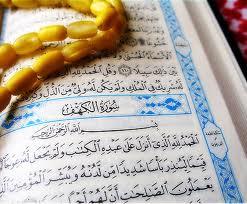 بَيْنَ ذَٰلِكَ سَبِيلًا ۝ وَقُلِ الْحَمْدُ لِلَّهِ
شَرِيكٌ فِي الْمُلْكِ وَلَمْ يَكُن لَّهُ وَلِيٌّ مِّنَ الذُّلِّ
سُورَةُ الْكَهْفِ
بِسْمِ اللَّهِ الرَّحْمَٰنِ الرَّحِيمِ
الْحَمْدُ لِلَّهِ الَّذِي أَنزَلَ عَلَىٰ عَبْدِهِ الْكِتَابَ وَلَمْ يَجْعَل لَّهُ عِوَجًا
قَيِّمًا لِّيُنذِرَ بَأْسًا شَدِيدًا مِّن لَّدُنْهُ وَيُبَشِّرَ الْمُؤْمِنِينَ
يَعْمَلُونَ الصَّالِحَاتِ أَنَّ لَهُمْ